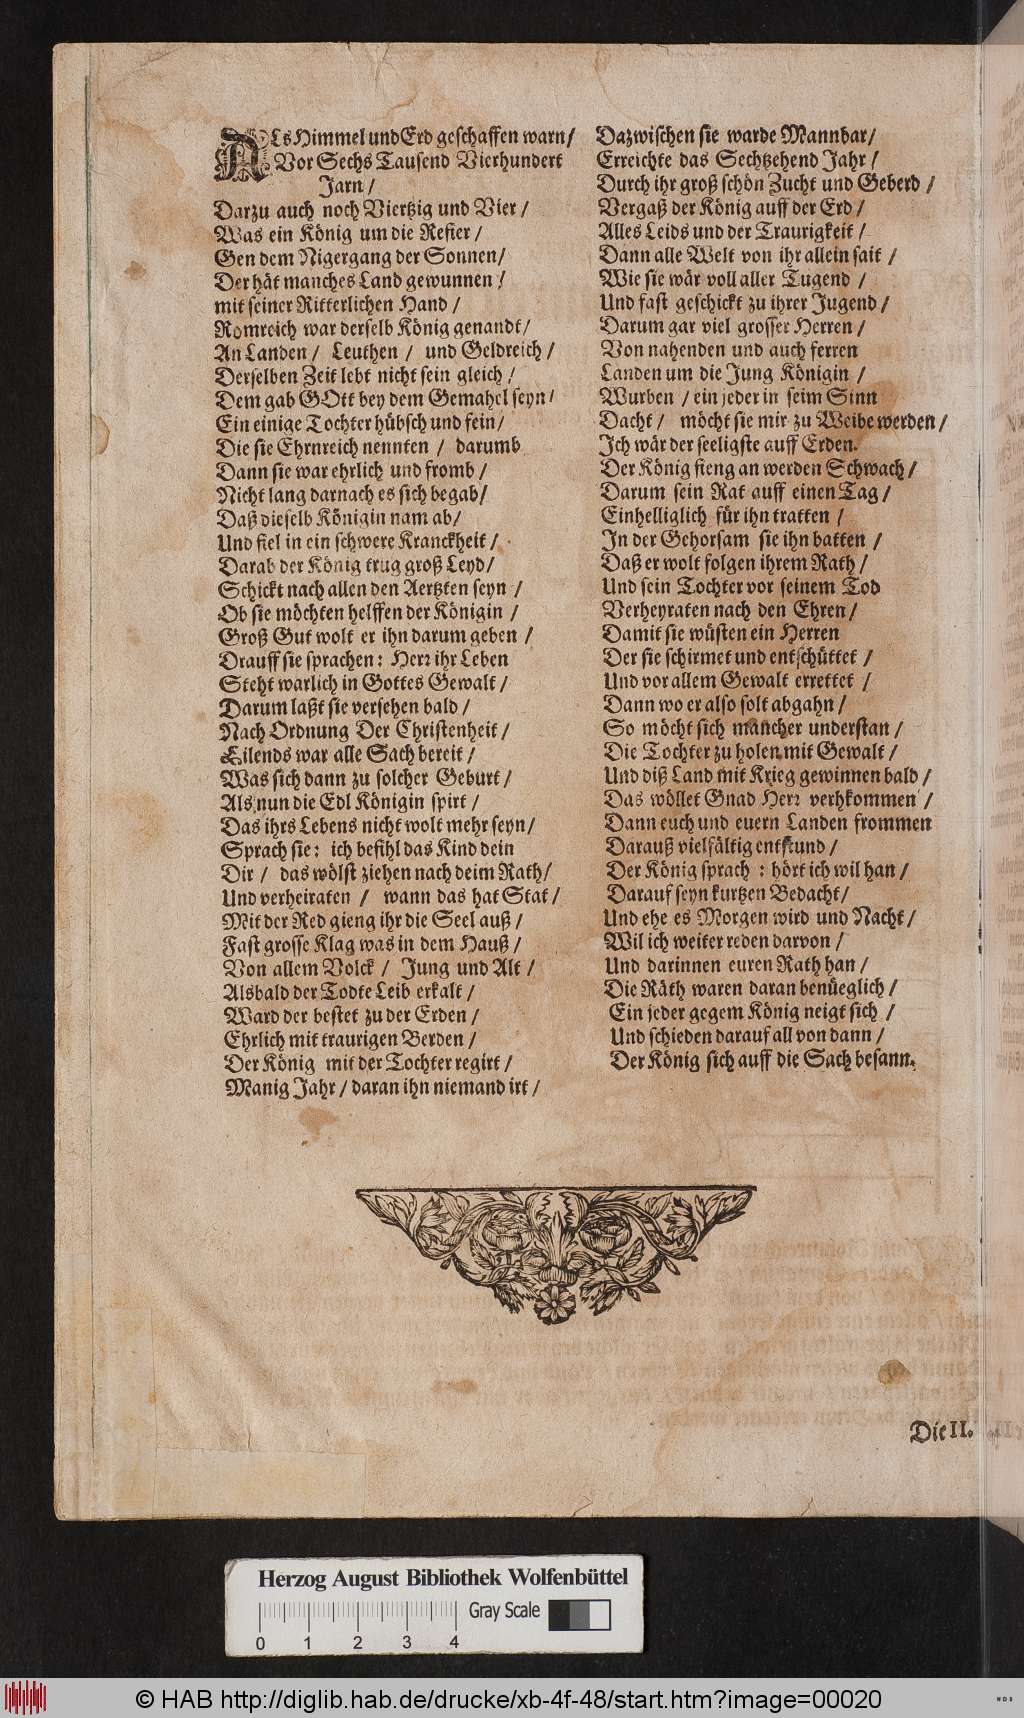 ALs Himmel und Erd geschaffen warn/
Vor Sechs Tausend Vierhundert
Jarn /
Darzu auch noch Viertzig und Vier /
Was ein König um die Refier /
Gen dem Nigergang der Sonnen/
Der hät manches Land gewunnen /
mit seiner Ritterlichen Hand /
Romreich war derselb König genandt/
An Landen / Leuthen / und Geldreich /
Derselben Zeit lebt nicht sein gleich /
Dem gab GOtt bey dem Gemahel seyn/
Ein einige Tochter hübsch und fein/
Die sie Ehrnreich nennten / darumb
Dann sie war ehrlich und fromb /
Nicht lang darnach es sich begab/
Daß dieselb Königin nam ab/
Und fiel in ein schwere Kranckheit /
Darab der König trug groß Leyd/
Schickt nach allen den Aertzten seyn /
Ob sie möchten helffen der Königin /
Groß Gut wolt er ihn darum geben /
Drauff sie sprachen: Herr ihr Leben
Steht warlich in Gottes Gewalt /
Darum laßt sie versehen bald /
Nach Ordnung Der Christenheit /
Eilends war alle Sach bereit /
Was sich dann zu solcher Geburt /
Als nun die Edl Königin spirt /
Das ihrs Lebens nicht wolt mehr seyn/
Sprach sie: ich befihl das Kind dein
Dir / das wölst ziehen nach deim Rath/
Und verheiraten / wann das hat Stat /
Mit der Red gieng ihr die Seel auß /
Fast grosse Klag was in dem Hauß /
Von allem Volck / Jung und Alt /
Alsbald der Todte Leib erkalt /
Ward der bestet zu der Erden /
Ehrlich mit traurigen Berden /
Der König mit der Tochter regirt /
Manig Jahr / daran ihn niemand irt /
Dazwischen sie warde Mannbar/
Erreichte das Sechtzehend Jahr /
Durch ihr groß schön Zucht und Geberd /
Vergaß der König auff der Erd /
Alles Leids und der Traurigkeit /
Dann alle Welt von ihr allein sait /
Wie sie wär voll aller Tugend /
Und fast geschickt zu ihrer Jugend /
Darum gar viel grosser Herren /
Von nahenden und auch ferren
Landen um die Jung Königin /
Wurben / ein jeder in seim Sinn
Dacht / möcht sie mir zu Weibe werden /
Ich wär der seeligste auff Erden.
Der König fieng an werden Schwach /
Darum sein Rat auff einen Tag /
Einhelliglich für ihn tratten /
In der Gehorsam sie ihn batten /
Daß er wolt folgen ihrem Rath /
Und sein Tochter vor seinem Tod
Verheyraten nach den Ehren /
Damit sie wüsten ein Herren
Der sie schirmet und entschüttet /
Und vor allem Gewalt errettet /
Dann wo er also solt abgahn /
So möcht sich mancher understan /
Die Tochter zu holen mit Gewalt /
Und diß Land mit Krieg gewinnen bald /
Das wöllet Gnad Herr verhkommen /
Dann euch und euern Landen frommen
Darauß vielfältig entstund /
Der König sprach : hört ich wil han /
Darauf seyn kurtzen Bedacht/
Und ehe es Morgen wird und Nacht/
Wil ich weiter reden darvon /
Und darinnen euren Rath han /
Die Räth waren daran benüeglich /
Ein jeder gegem König neigt sich /
Und schieden darauf all von dann /
Der König sich auff die Sach besann.
Die II.
Herzog August Bibliothek Wolfenbüttel
Gray Scale
0 1 2 3 4
© HAB http://diglib.hab.de/drucke/xb-4f-48/start.htm?image=00020